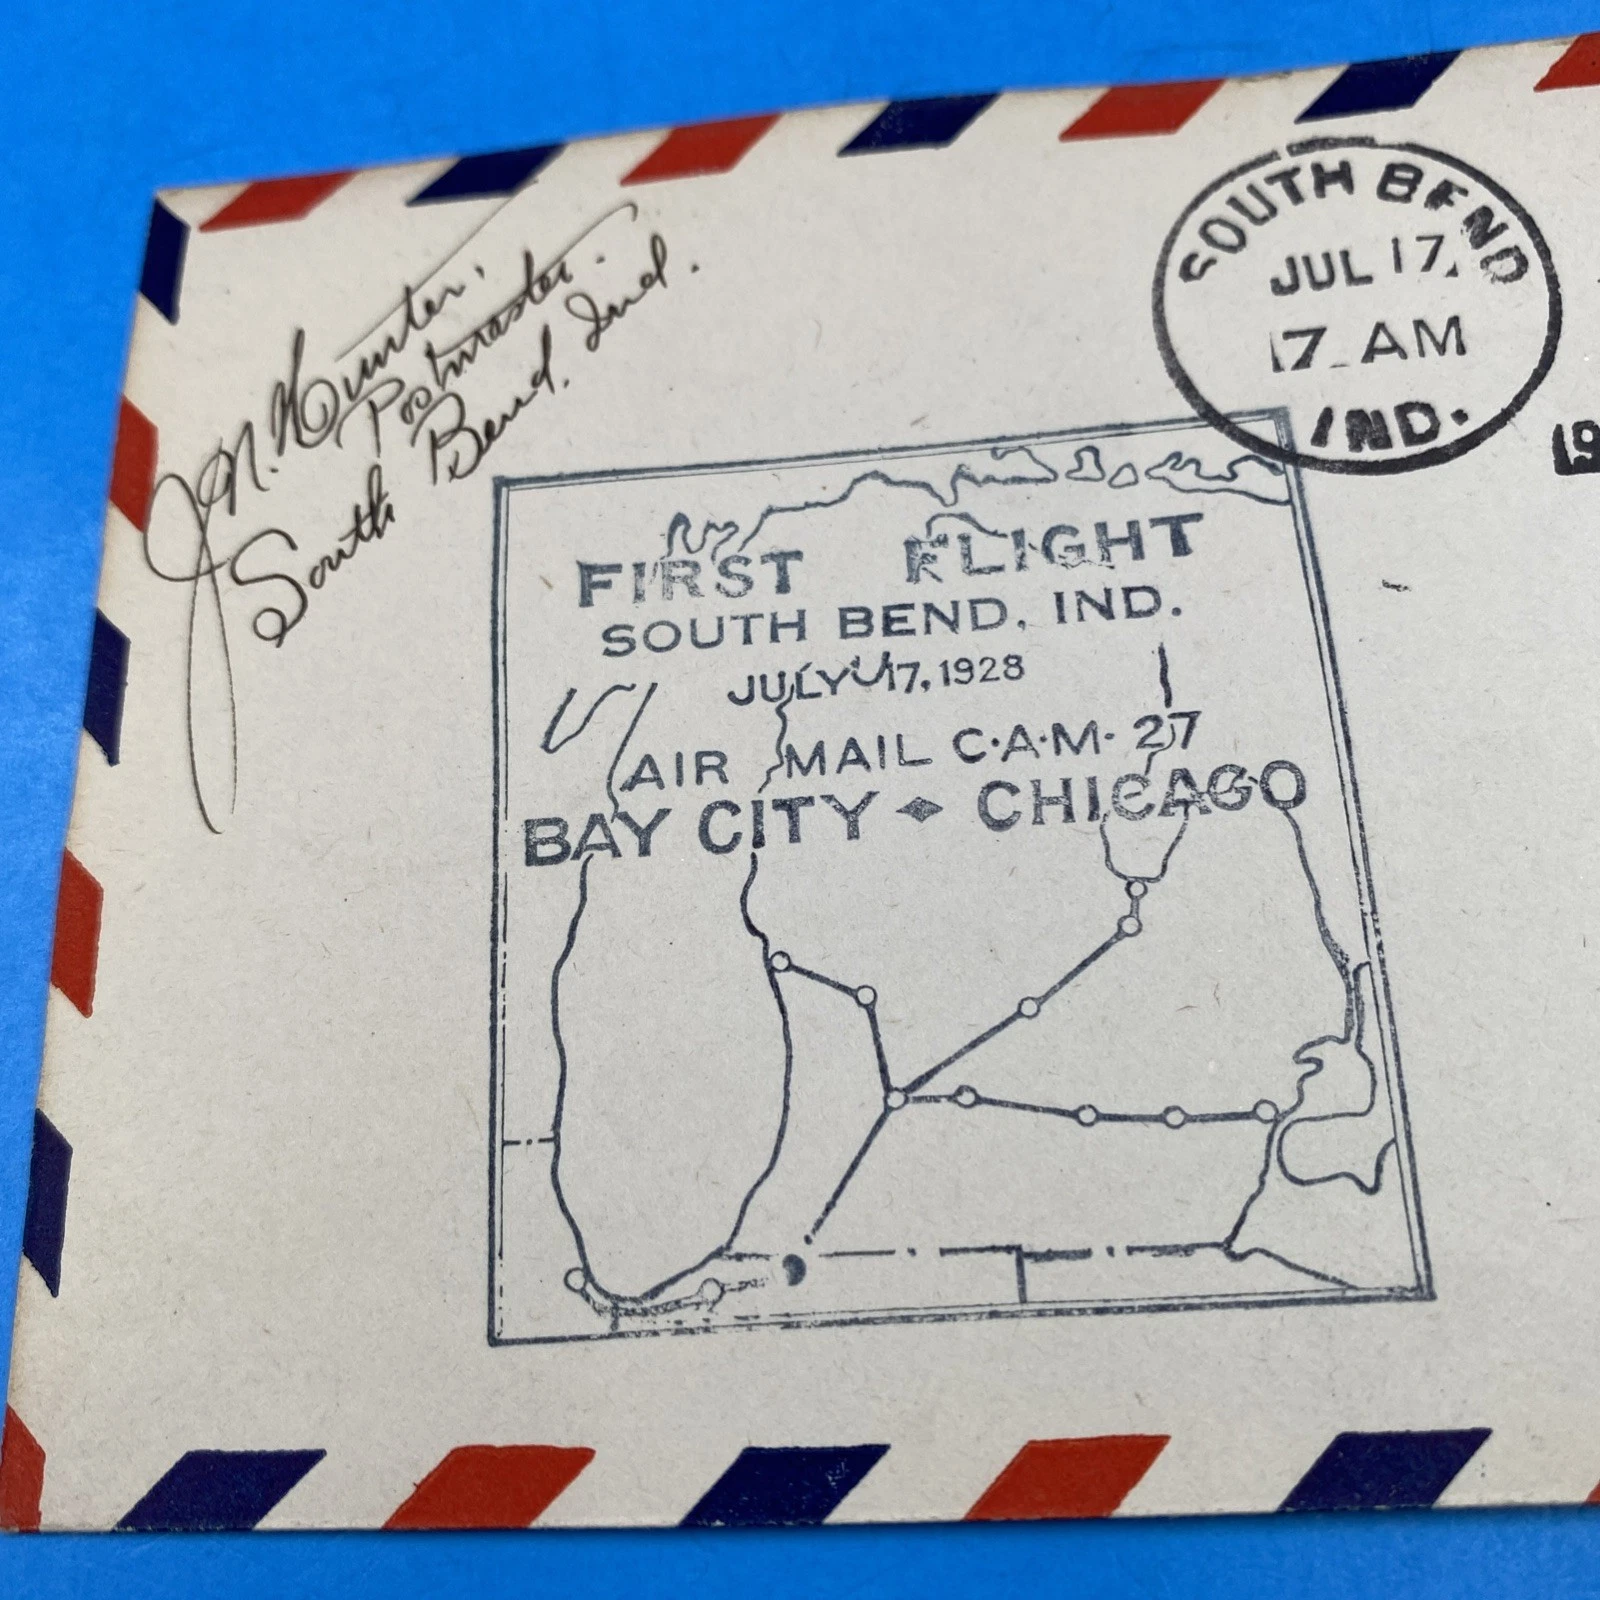 J.N. Hunter.
Postmaster.
South Bend. Ind.
SOUTH BEND
JUL 17
7 AM
IND.
19
FIRST FLIGHT
SOUTH BEND, IND.
JULY 17, 1928
AIR MAIL C·A·M· 27
BAY CITY ◆ CHICAGO